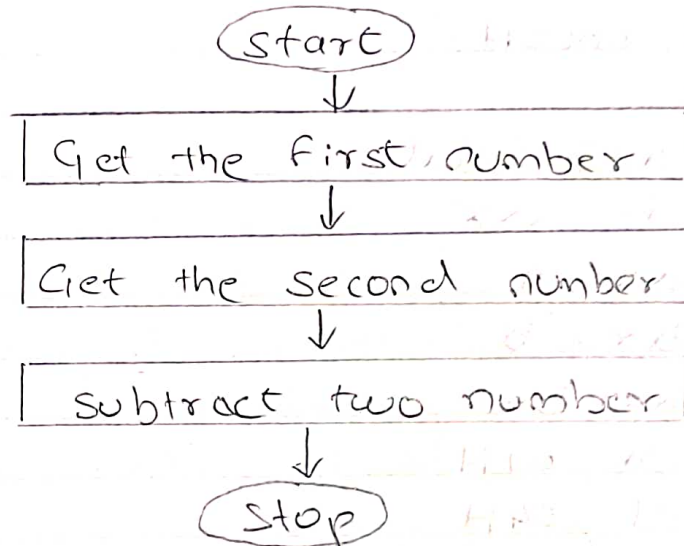 start
Get the first number
Get the second number
subtract two number
stop